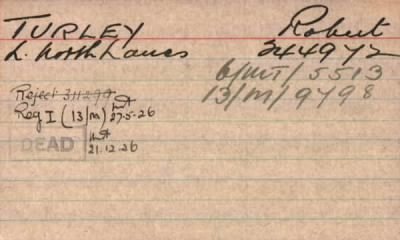 TURLEY Robert
L. North Lancs 244972
6/MT/5513
13/M/9798
Reject 311299
Reg I (13/M) 27.5.26
DEAD
21.12.26